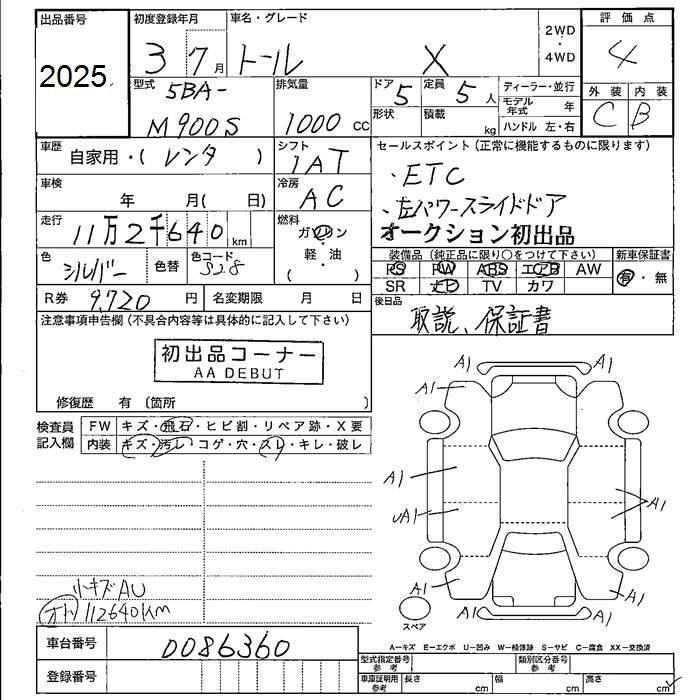 出品番号
2025
初度登録年月
3 7月
車名・グレード
トール X
2WD
・
4WD
評価点
4
外装 内装
C B
型式
5BA-
M900S
排気量
1000 cc
ドア 5
形状
定員 5 人
積載 kg
ディーラー・並行
モデル年式 年
ハンドル 左・右
車歴
自家用・( レンタ )
シフト
IAT
セールスポイント(正常に機能するものに限ります)
・ETC
・左パワースライドドア
オークション初出品
車検
年 月( 日)
冷房
AC
走行
11万2千640km
燃料
ガソリン
・
軽・油
( )
色
シルバー
色替
色コード
S28
装備品(純正品に限り○をつけて下さい)
PS PW ABS エアB AW
SR ナビ TV カワ
新車保証書
有・無
R券 9,720円
名変期限 月 日
後日品
取説、保証書
注意事項申告欄(不具合内容等は具体的に記入して下さい)
初出品コーナー
AA DEBUT
修復歴 有 〔箇所 〕
検査員
記入欄
FW キズ・飛石・ヒビ割・リペア跡・X要
内装 キズ・汚レ・コゲ・穴・スレ・キレ・破レ
A1
A1
A1
A1
A1
A1
A1
A1
A1
A1
スペア
小キズAU
オト 112640km
A−キズ E−エクボ U−凹み W−補修跡 S−サビ C−腐食 XX−交換済
車台番号 0086360
登録番号
型式指定番号
参考
類別区分番号
参考
車庫証明用
参考
長さ cm
幅 cm
高さ cm